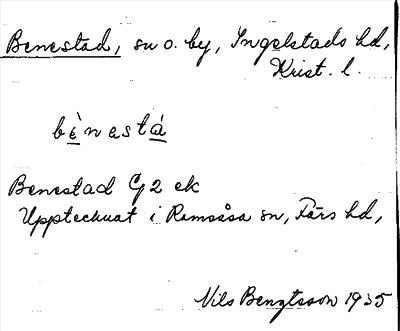 Benestad, sn o. by, Ingelstads hd,
Krist. l.
bènestá
Benestad G 2 ek
Upptecknat i Ramsåsa sn, Färs hd,
Nils Bengtsson 1935